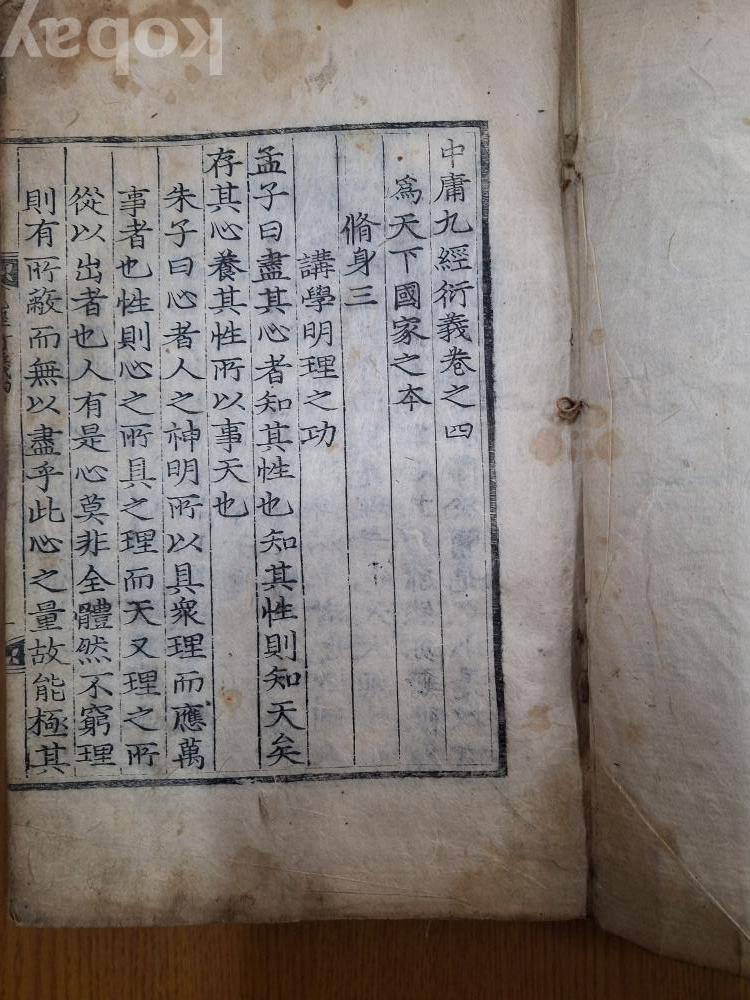 中庸九經衍義卷之四
爲天下國家之本
脩身三
講學明理之功
孟子曰盡其心者知其性也知其性則知天矣
存其心養其性所以事天也
朱子曰心者人之神明所以具衆理而應萬
事者也性則心之所具之理而天又理之所
從以出者也人有是心莫非全體然不窮理
則有所蔽而無以盡乎此心之量故能極其
kobay